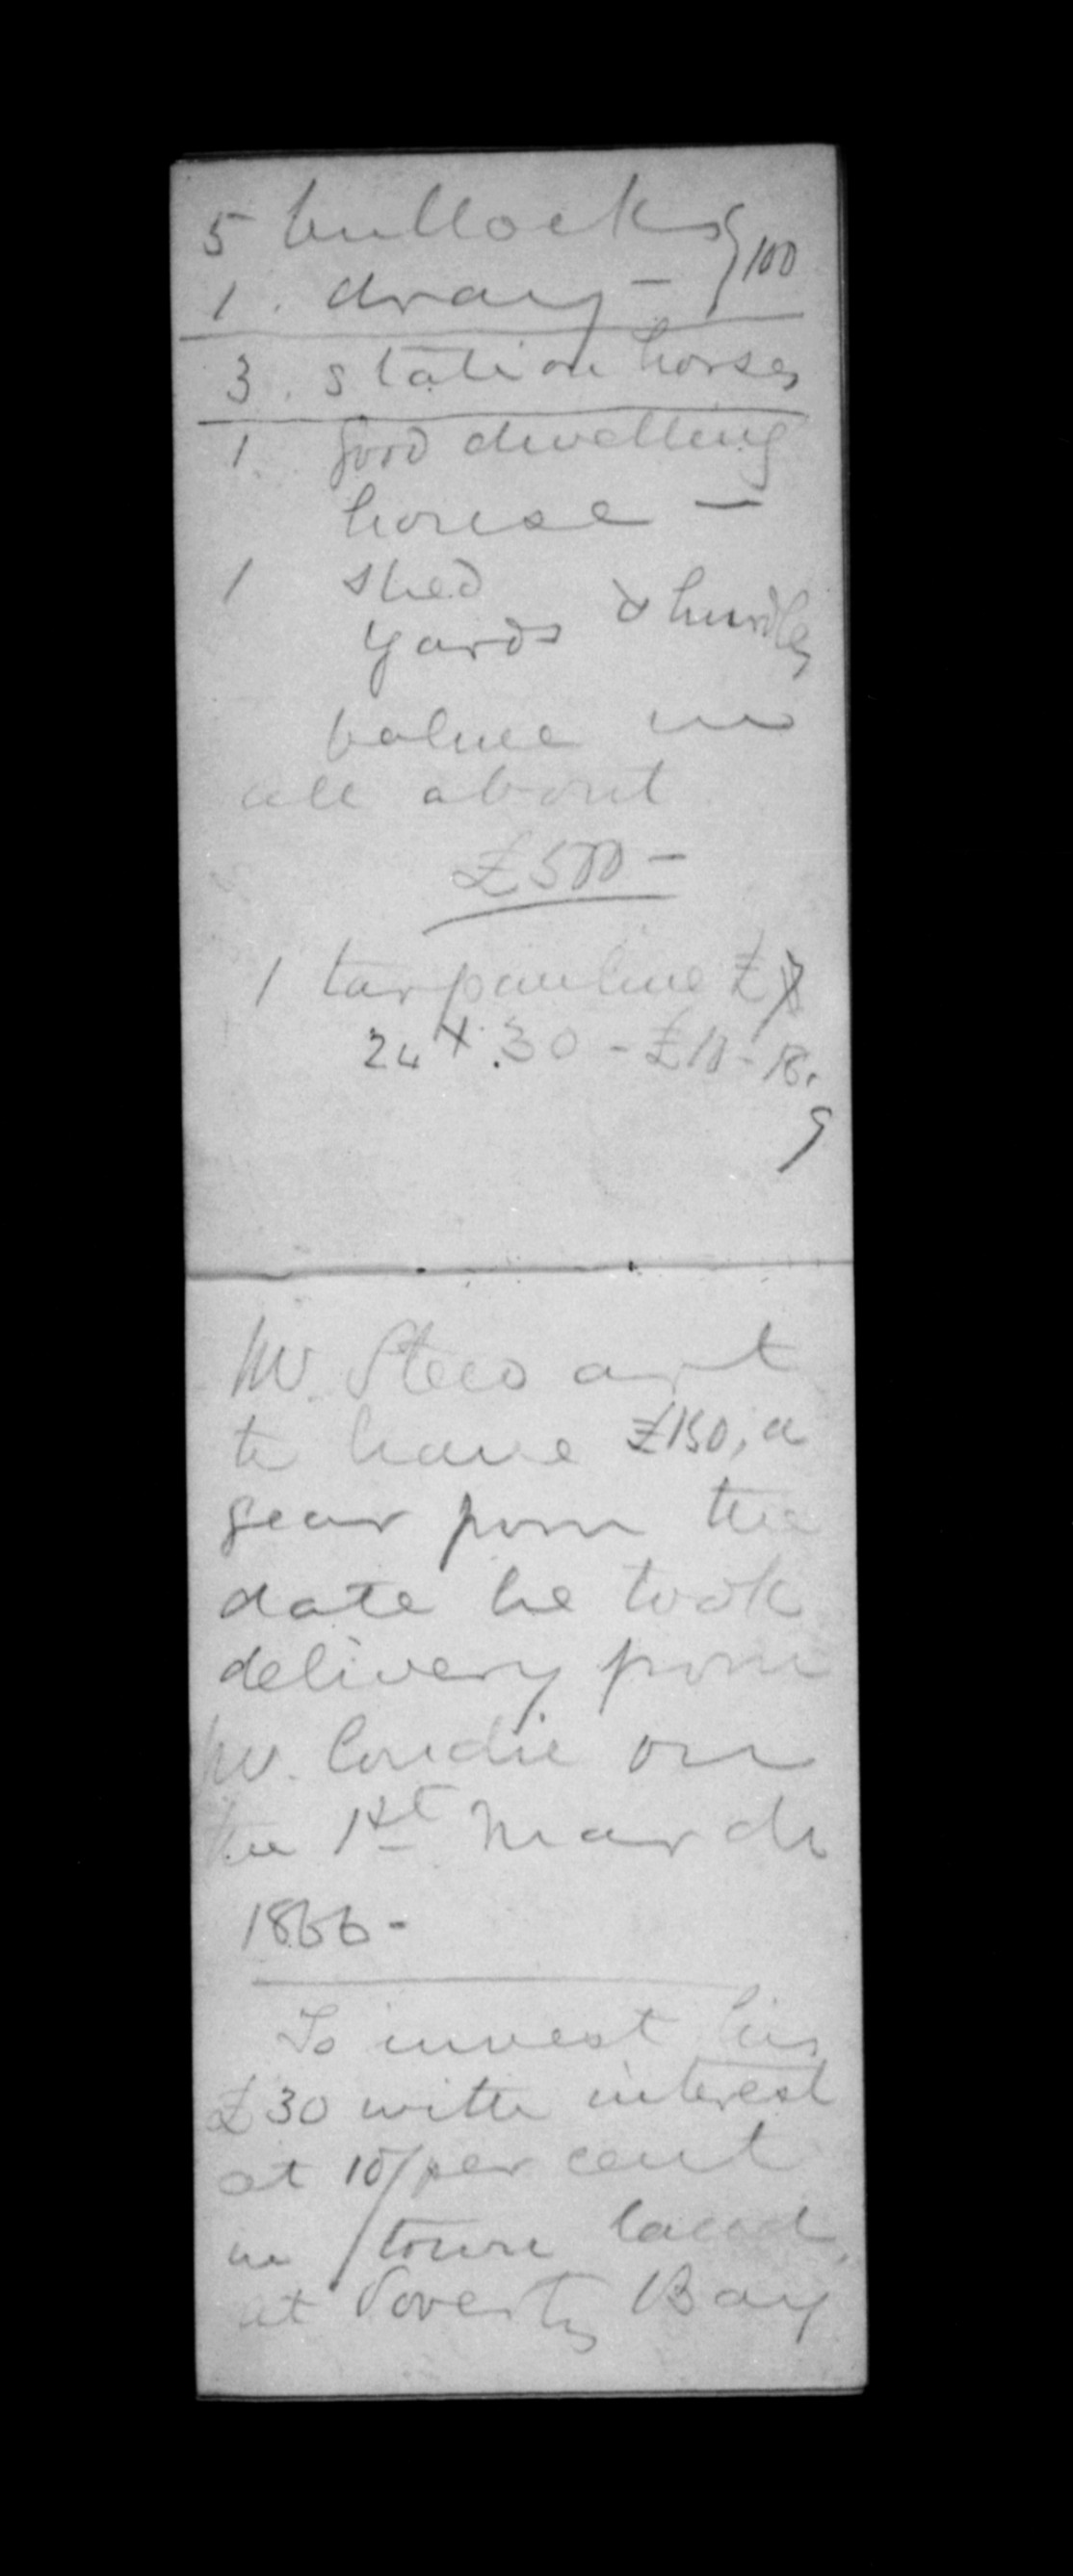 5 bullocks } 100
1. dray -
3. station horses
1 good dwelling
house -
1 shed
yards & hurdles
value in
all about
£500 -
1 tarpauline £
24 x 30 - £10 -
9
Mr. Stewart
to have £150, a
year from the
date he took
delivery from
Mr. Condie on
the 1st March
1866 -
To invest his
£30 with interest
at 10/ per cent
in town land
at Poverty Bay